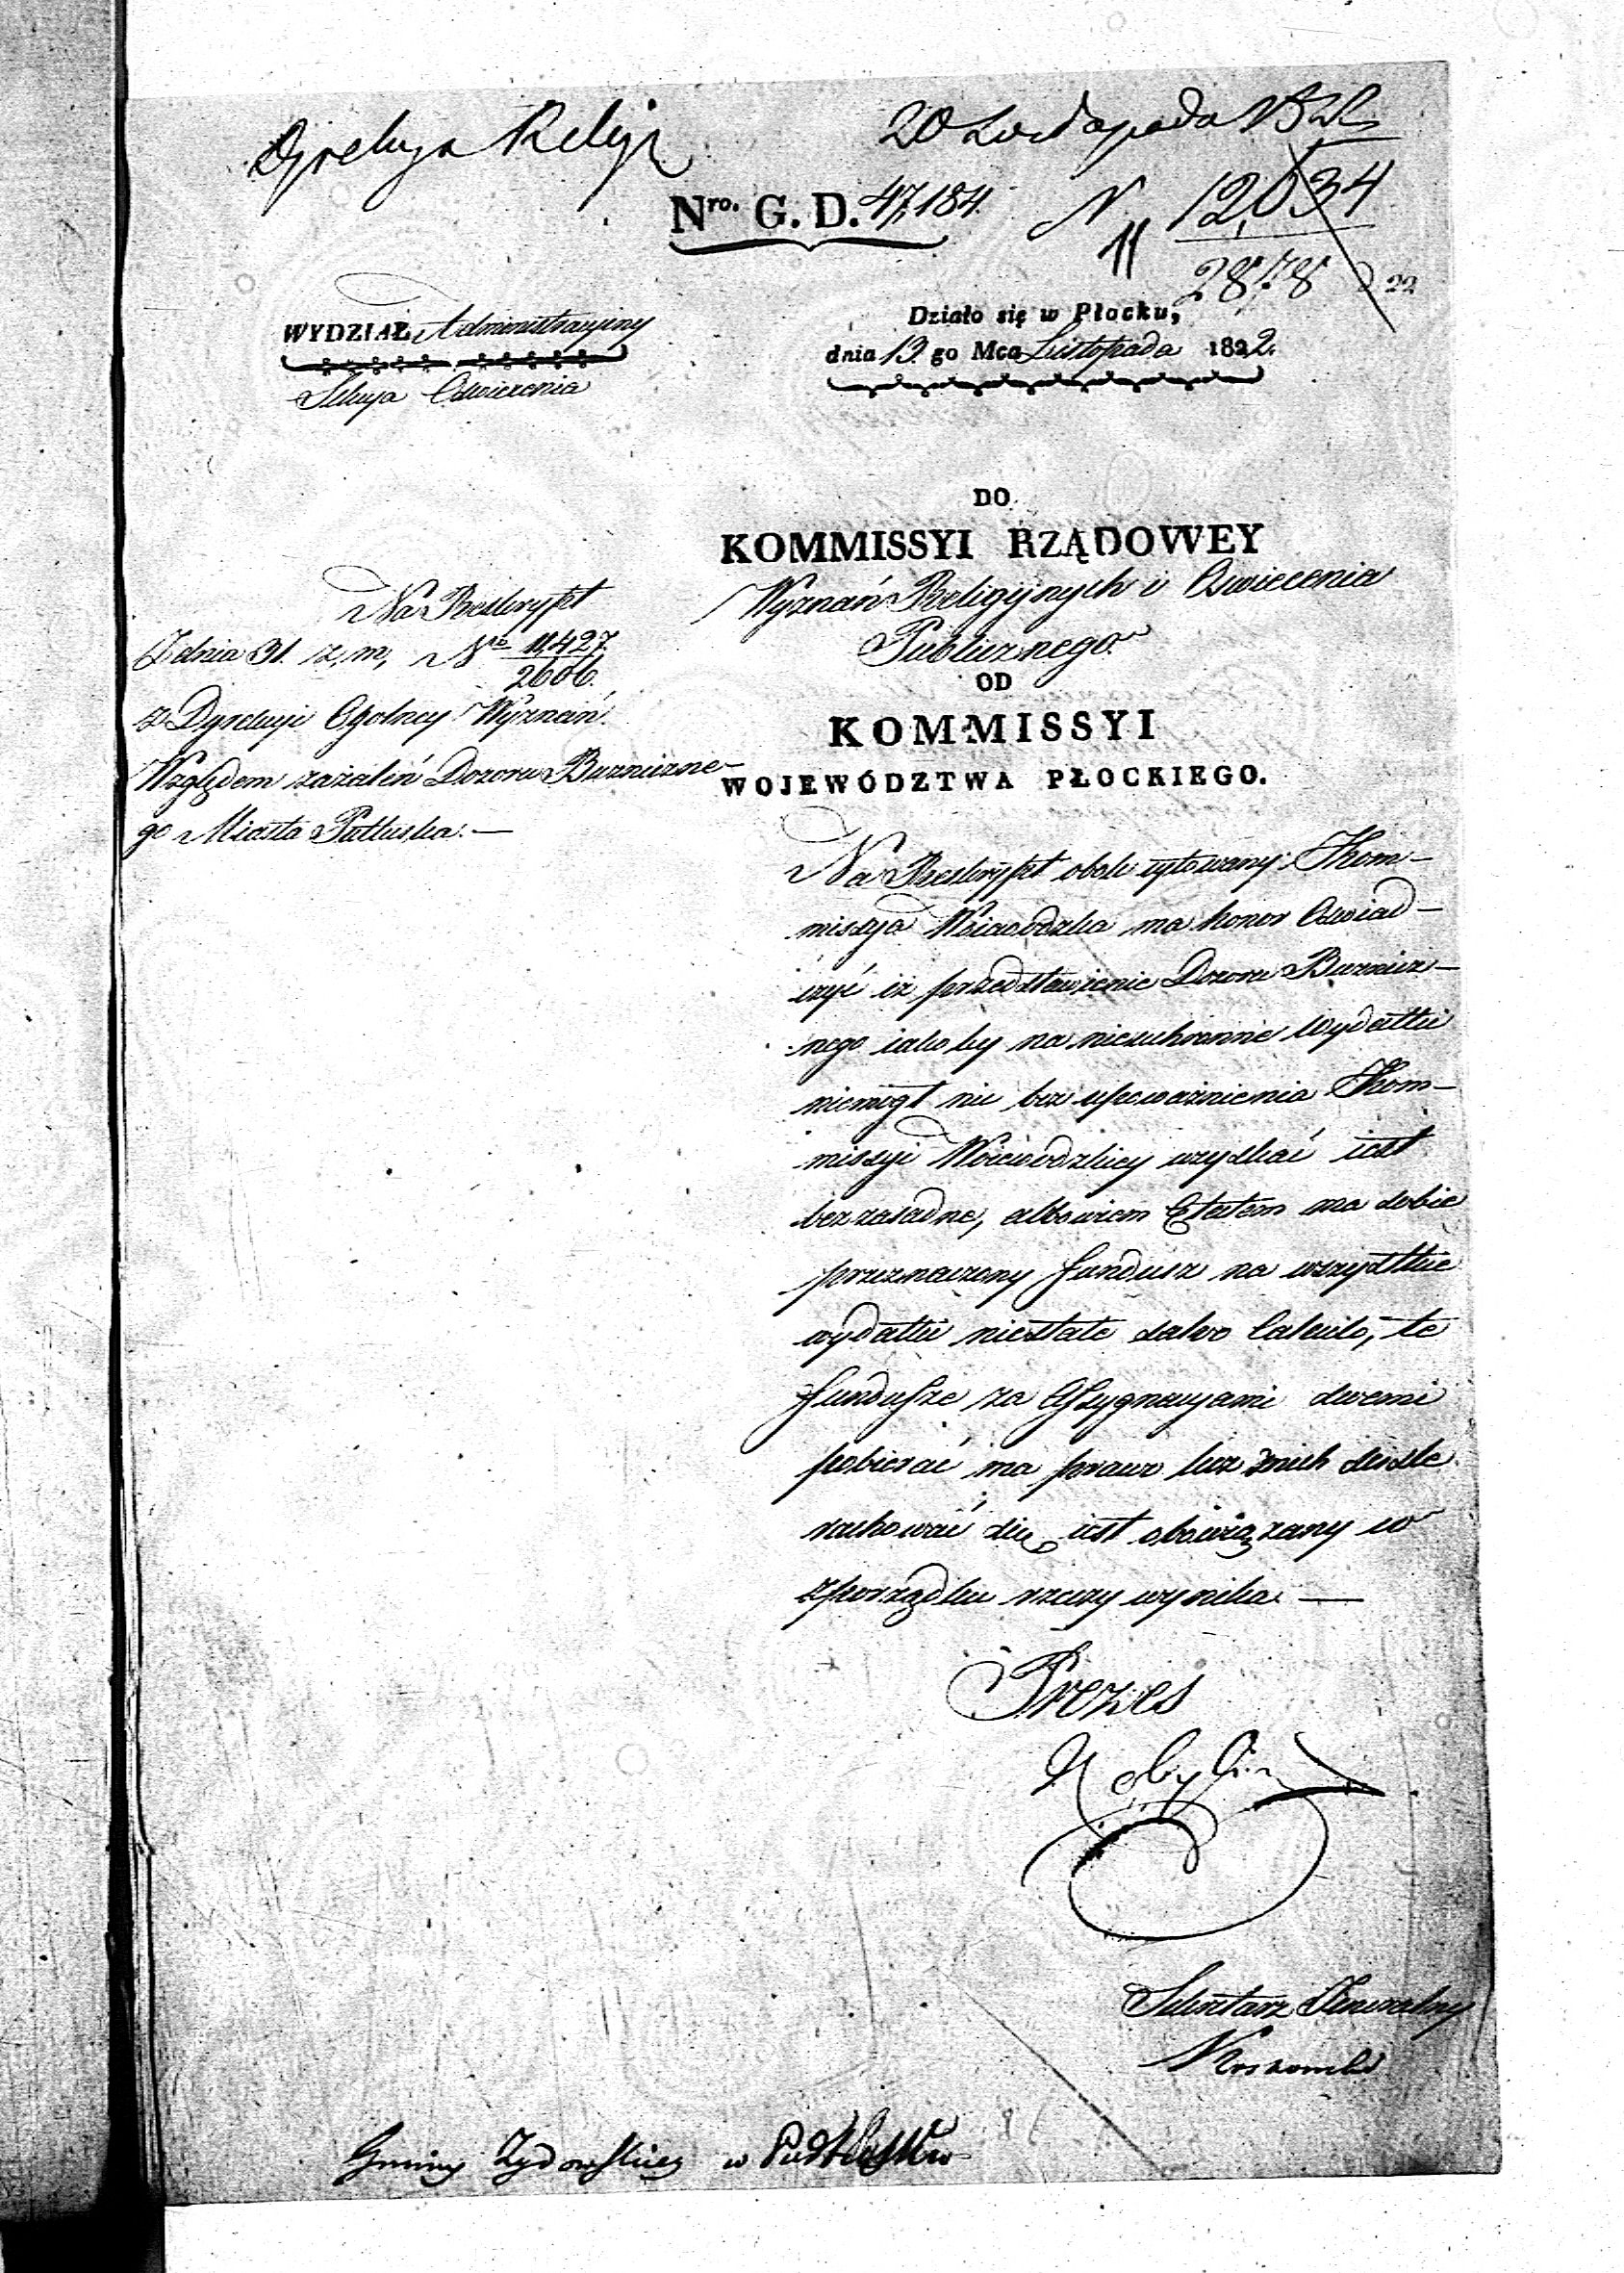 Dyrekcya Religi
20 Listopada 1822
Nro. G. D. 47,184.
N 12,034
11 2878 22
WYDZIAŁ Administracyiny
Sekcya Oświecenia
Działo się w Płocku,
dnia 13. go Mca Listopada 1822.
DO
KOMMISSYI RZĄDOWEY
Wyznań Religijnych i Oswiecenia
Publicznego.
OD
KOMMISSYI
WOJEWÓDZTWA PŁOCKIEGO.
Na Reskrypt
Z dnia 31. z. m, Nro 11,427.
2606.
z Dyrekcyi Ogolney Wyznań.
Względem zażaleń Dozoru Buzniczne-
go Miasta Pułtuska. —
Na Reskrypt obok cytowany, Kom-
missya Woiewodzka ma honor Oswiad-
czyć iż przedstawienie Dozoru Buznicz-
nego iako by na nieuchronne wydatki
niemógł nic bez upoważnienia Kom-
missyi Woiewodzkiey uzyskać iest
bezzasadne, albowiem Etatem ma sobie
przeznaczony fundusz na wszystkie
wydatki niestałe salvo Calculo, te
fundusze za Assygnacyami swemi
pobierać ma prawo lecz znich ściśle
rachować się iest obowiązany co
z porządku rzeczy wynika. —
Prezes
Kobyliń
Sekretarz Jeneralny
Gminy Zydowskiey w Pułtusku